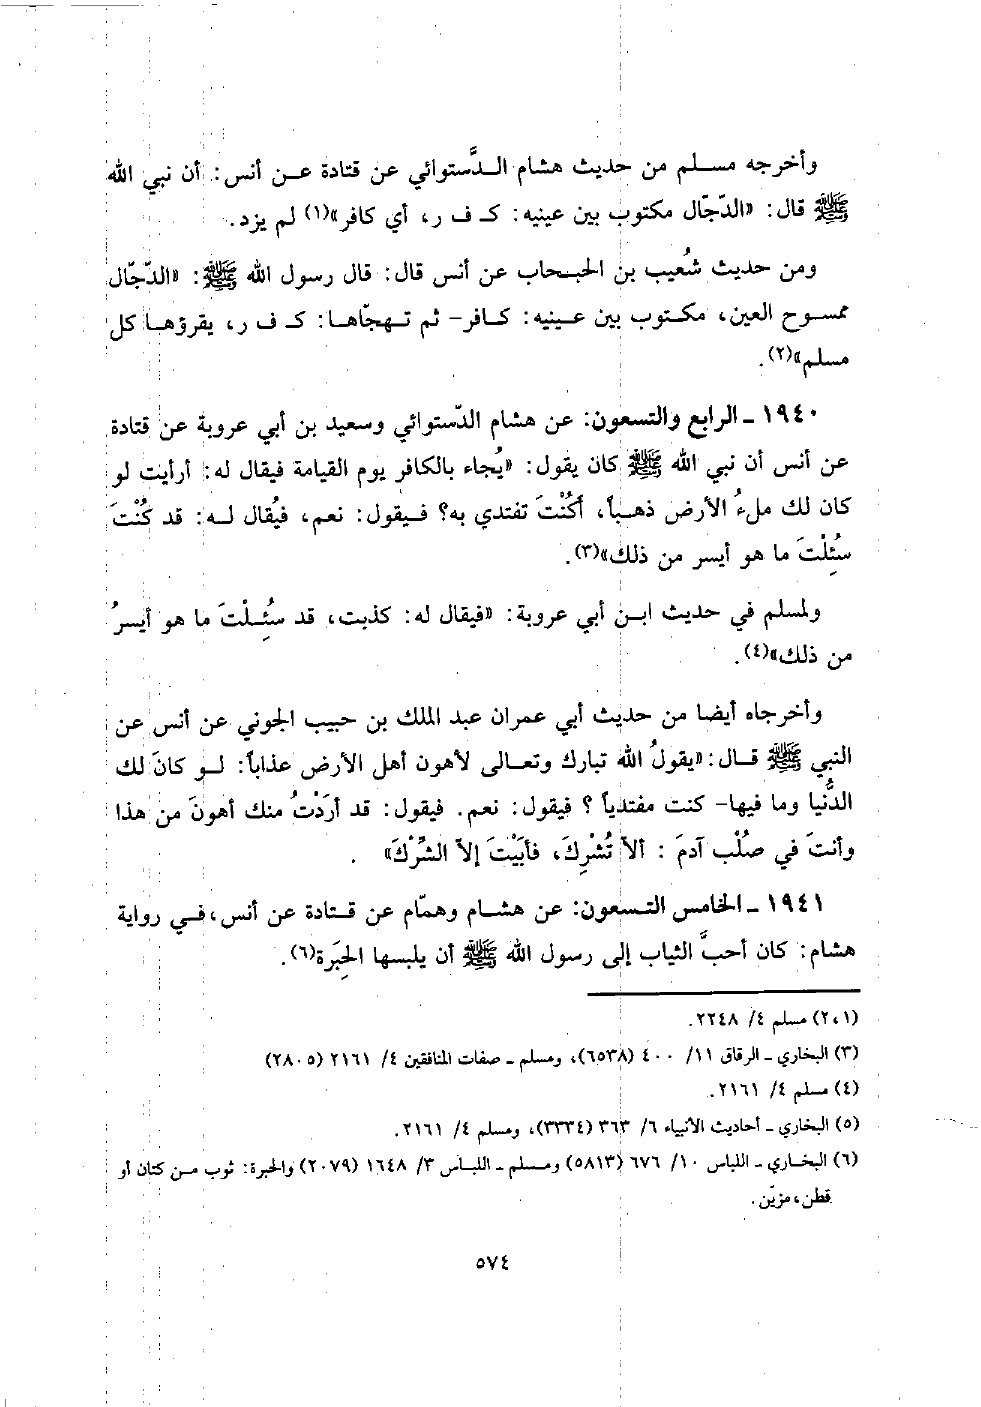 وأخرجه مسلم من حديث هشام الدَّستوائي عن قتادة عن أنس: أن نبي الله
ﷺ قال: «الدّجّال مكتوب بين عينيه: ك ف ر، أي كافر»(١) لم يزد.
ومن حديث شُعيب بن الحبحاب عن أنس قال: قال رسول الله ﷺ: «الدّجّال
ممسوح العين، مكتوب بين عينيه: كافر- ثم تهجّاها: ك ف ر، يقرؤها كل
مسلم»(٢).
١٩٤٠ ـ الرابع والتسعون: عن هشام الدّستوائي وسعيد بن أبي عروبة عن قتادة
عن أنس أن نبي الله ﷺ كان يقول: «يُجاء بالكافر يوم القيامة فيقال له: أرأيت لو
كان لك ملءُ الأرض ذهباً، أكُنْتَ تفتدي به؟ فيقول: نعم، فيُقال له: قد كُنْتَ
سُئِلْتَ ما هو أيسر من ذلك»(٣).
ولمسلم في حديث ابن أبي عروبة: «فيقال له: كذبت، قد سُئِلْتَ ما هو أيسرُ
من ذلك»(٤).
وأخرجاه أيضا من حديث أبي عمران عبد الملك بن حبيب الجوني عن أنس عن
النبي ﷺ قال: «يقولُ الله تبارك وتعالى لأهون أهل الأرض عذاباً: لو كانَ لك
الدُّنيا وما فيها- كنت مفتدياً ؟ فيقول: نعم. فيقول: قد أرَدْتُ منك أهونَ من هذا
وأنتَ في صُلْب آدمَ : ألاّ تُشْرِكَ، فأبَيْتَ إلاّ الشِّرْكَ» .
١٩٤١ ـ الخامس التسعون: عن هشام وهمّام عن قتادة عن أنس، في رواية
هشام: كان أحبَّ الثياب إلى رسول الله ﷺ أن يلبسها الحِبَرة(٦).
(٢،١) مسلم ٤/ ٢٢٤٨.
(٣) البخاري ـ الرقاق ١١/ ٤٠٠ (٦٥٣٨)، ومسلم ـ صفات المنافقين ٤/ ٢١٦١ (٢٨٠٥)
(٤) مسلم ٤/ ٢١٦١.
(٥) البخاري ـ أحاديث الأنبياء ٦/ ٣٦٣ (٣٣٣٤)، ومسلم ٤/ ٢١٦١.
(٦) البخاري ـ اللباس ١٠/ ٦٧٦ (٥٨١٣) ومسلم ـ اللباس ٣/ ١٦٤٨ (٢٠٧٩) والحبرة: ثوب من كتان أو
قطن، مزيّن.
٥٧٤